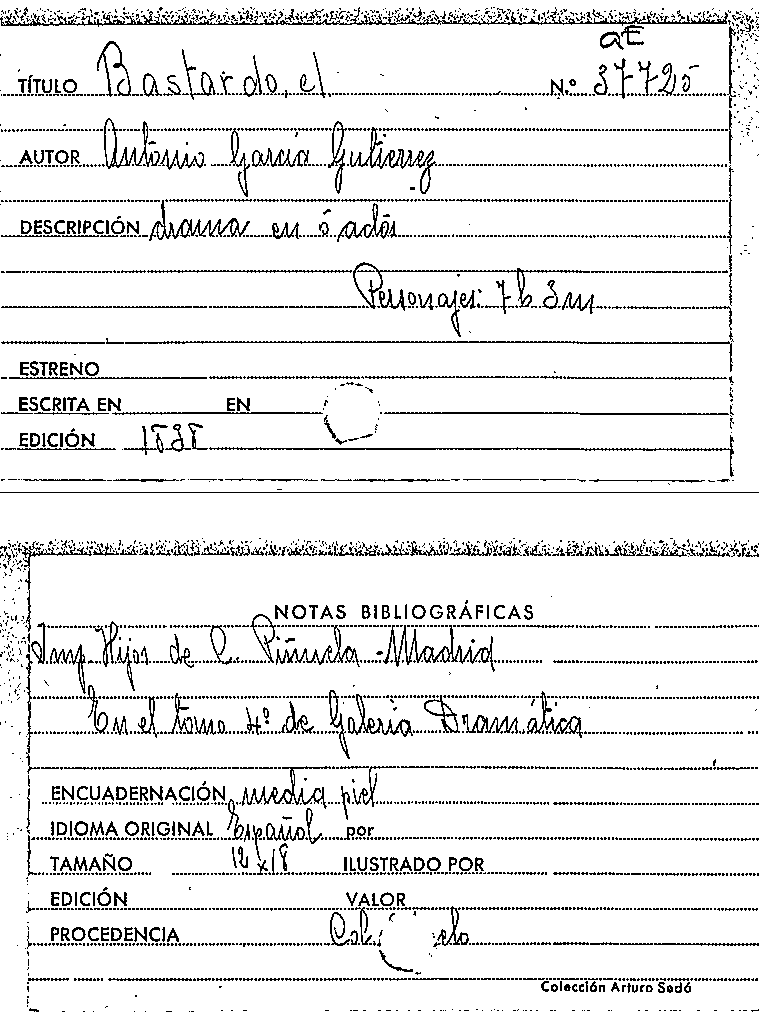 aE
TÍTULO Bastardo, el N.º 37725
AUTOR Antonio García Gutierrez
DESCRIPCIÓN drama en 5 actos
Personajes: 7 h 3 m
ESTRENO
ESCRITA EN EN
EDICIÓN 1838
NOTAS BIBLIOGRÁFICAS
Imp. Hijos de C. Piñuela - Madrid
En el tomo 4º de Galería Dramática
ENCUADERNACIÓN media piel
IDIOMA ORIGINAL Español por
TAMAÑO 12 x 18 ILUSTRADO POR
EDICIÓN VALOR
PROCEDENCIA Col.
Colección Arturo Sedó